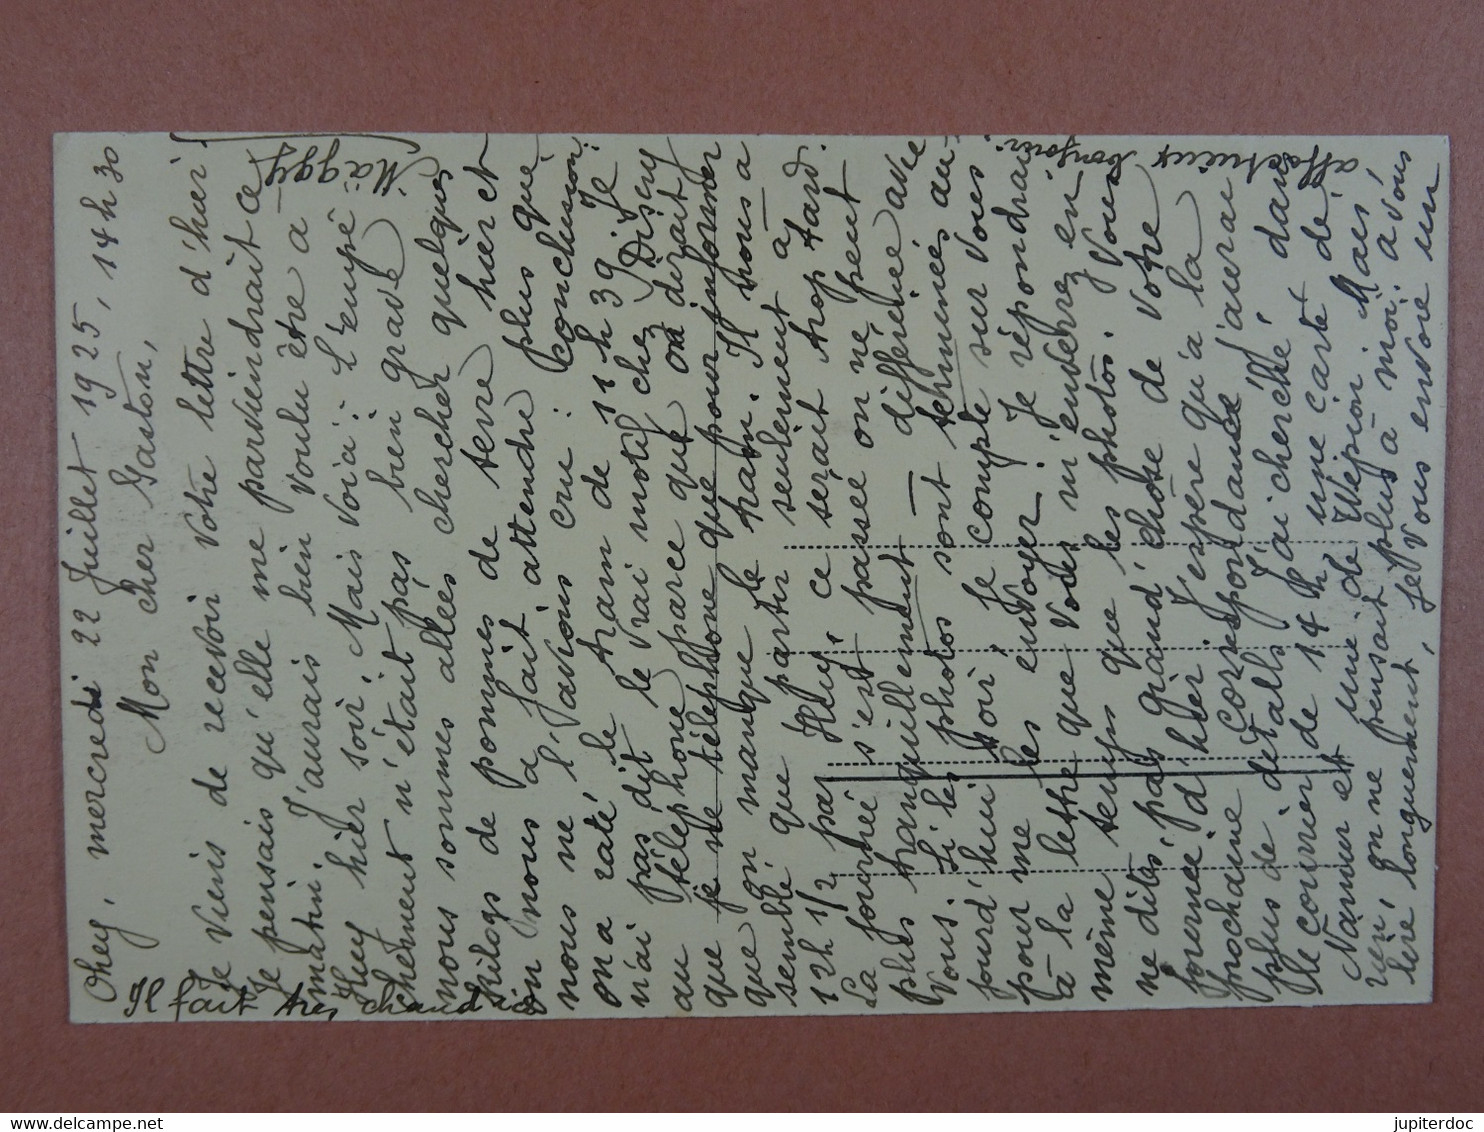 Ohey, mercredi 22 Juillet 1925, 14 h 30
Mon cher Gaston,
Je viens de recevoir votre lettre d'hier.
Je pensais qu'elle me parviendrait ce
matin. J'aurais bien voulu être à
Huy hier soir. Mais voià: l'empê
chement n'était pas bien grave
nous sommes allées chercher quelques
kilogs de pommes de terre hier et
on nous a fait attendre plus que
nous ne l'avions cru: conclusion:
on a raté le tram de 11 h 39. Je
n'ai pas dit le vrai motif chez Disery
au téléphone parce que on dirait
que je ne téléphone que pour informer
que on manque le tram. Il nous a
semblé que partir seulement à
12h 1/2 par Huy ce serait trop tard.
La journée s'est passée on ne peut
plus tranquillement – différence avec
vous. Si les photos sont terminées au-
jourd'hui soir, je compte sur vous
pour me les envoyer! Je répondrai
à la lettre que vous m'enverrez en
même temps que les photos. Vous
ne dites pas grand'chose de votre
journée d'hier. J'espère qu'à la
prochaine correspondance j'aurai
plus de détails. J'ai cherché, dans
le courrier de 14 h une carte de
Namur et une de Wépion. Mais
rien, on ne pensait plus à moi. A vous
lire longuement, je vous envoie un
affectueux bonjour.
Maggy
Il fait très chaud ici
jupiterdoc
delcampe.net